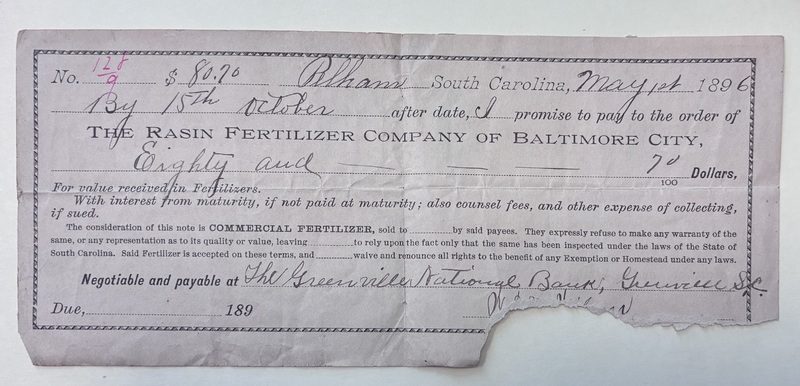 No. 128/9 $ 80.70 Pelham South Carolina, May 1st 1896
By 15th October after date, I promise to pay to the order of
THE RASIN FERTILIZER COMPANY OF BALTIMORE CITY,
Eighty and — — — 70/100 Dollars,
For value received in Fertilizers.
With interest from maturity, if not paid at maturity; also counsel fees, and other expense of collecting,
if sued.
The consideration of this note is COMMERCIAL FERTILIZER, sold to by said payees. They expressly refuse to make any warranty of the
same, or any representation as to its quality or value, leaving to rely upon the fact only that the same has been inspected under the laws of the State of
South Carolina. Said Fertilizer is accepted on these terms, and waive and renounce all rights to the benefit of any Exemption or Homestead under any laws.
Negotiable and payable at The Greenville National Bank, Greenville S.C.
Due, 189